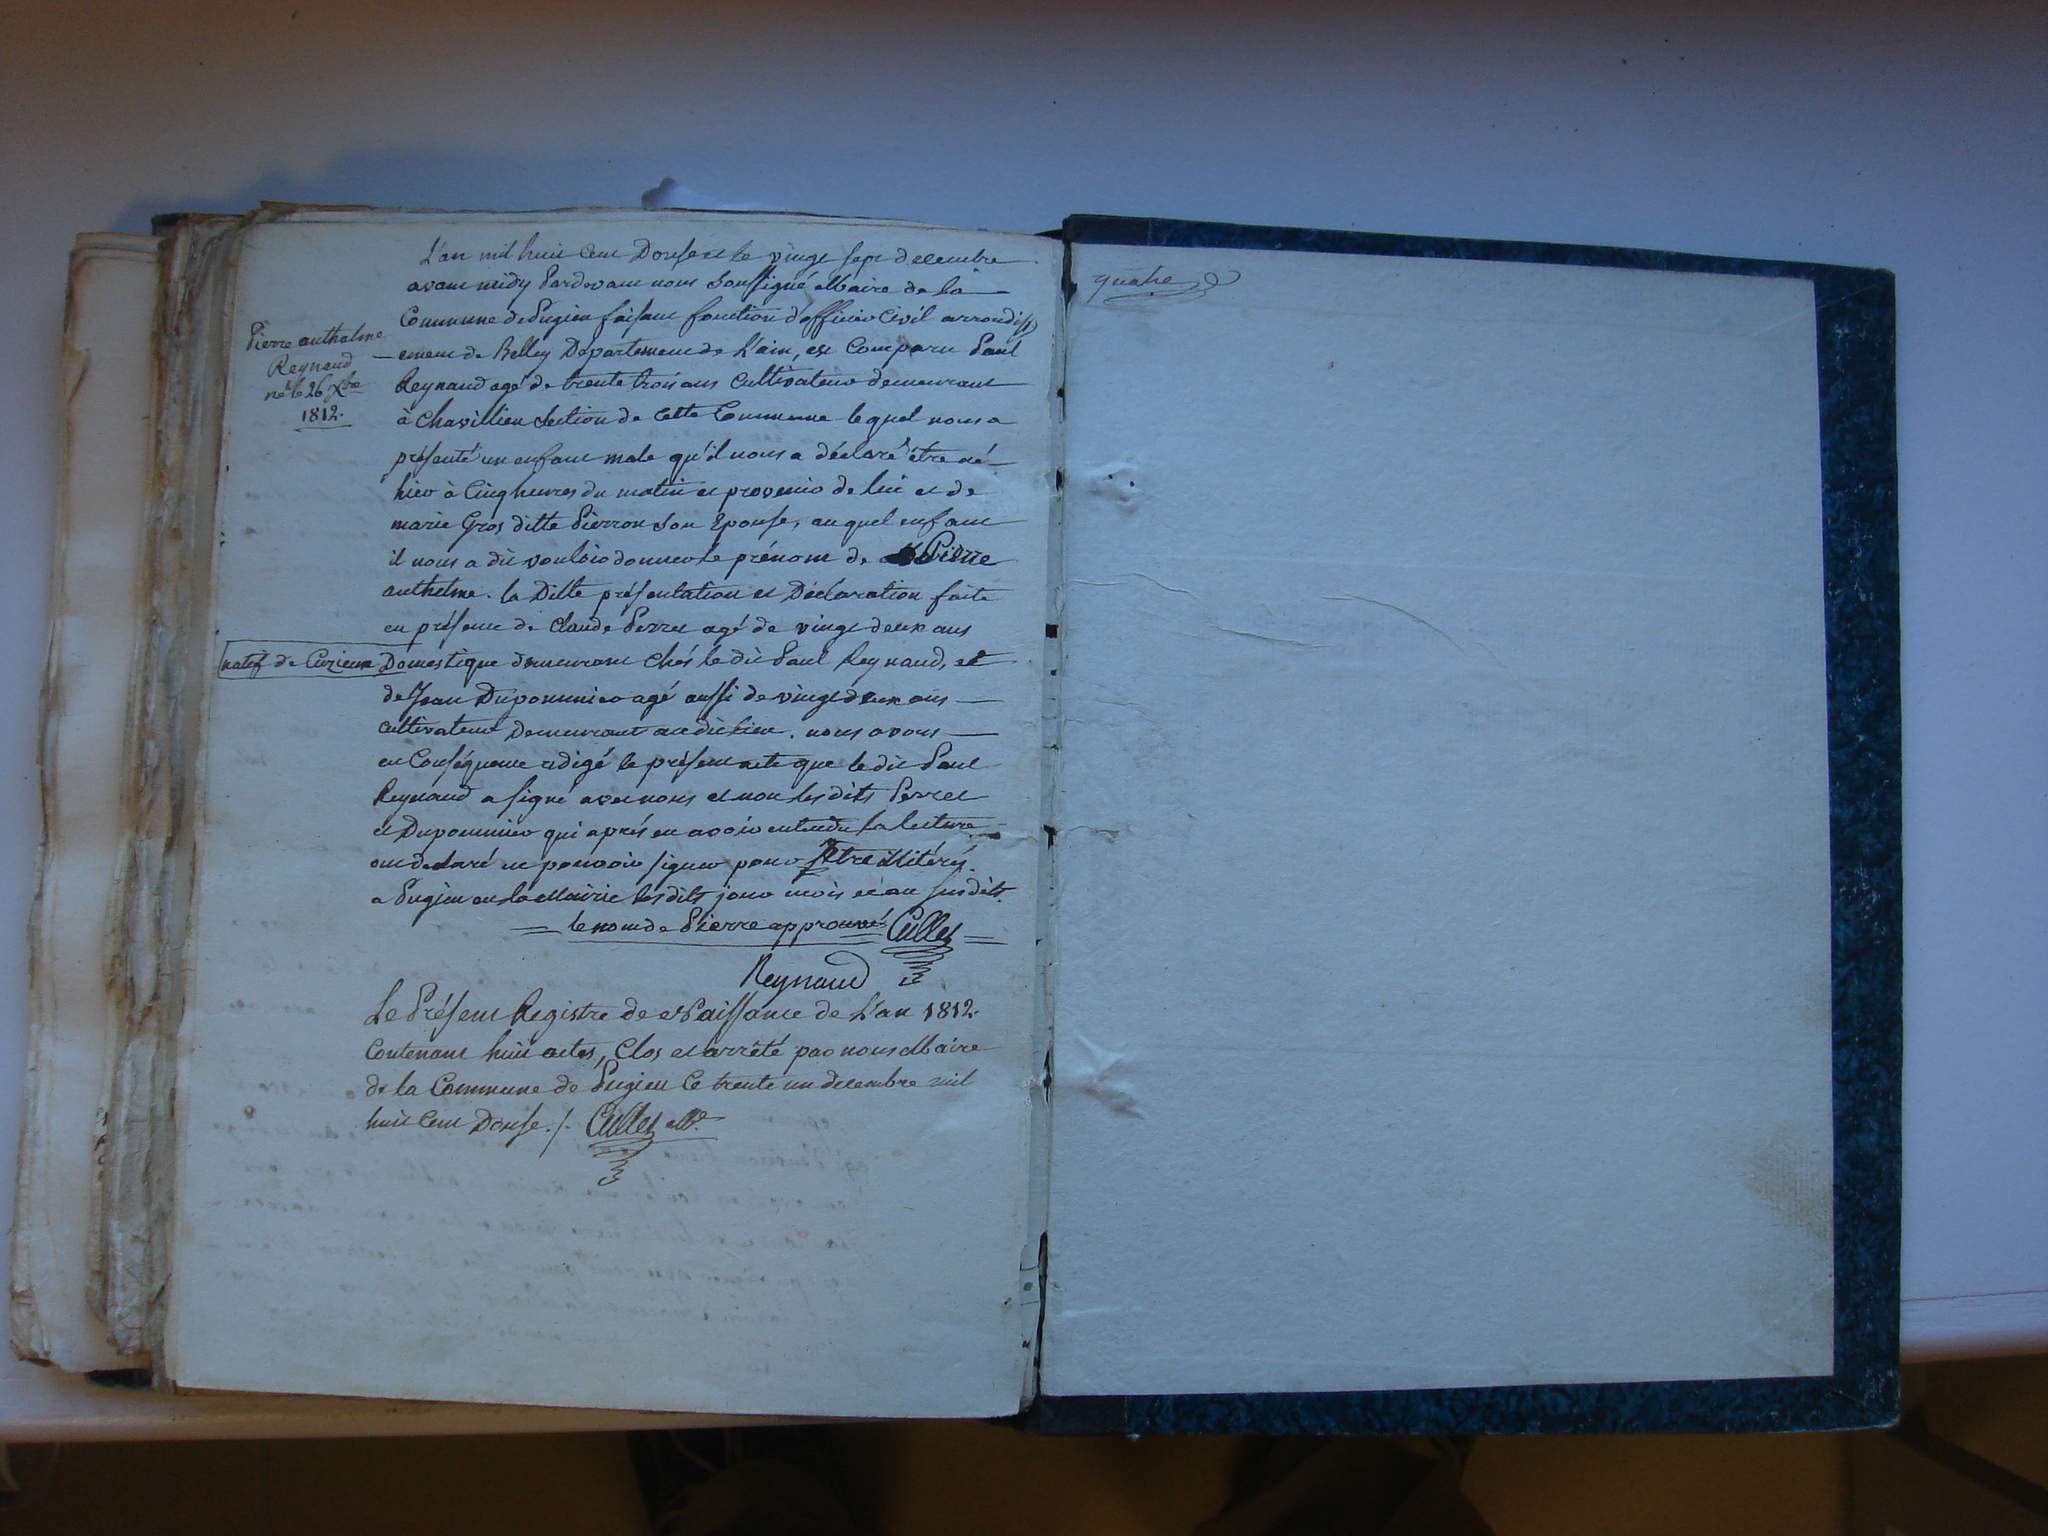 L'an mil huit cent Douse et le vingt sept decembre
avant midy Pardevant nous soussigné Maire de la
Commune de Pugieu faisant fonction d'officier Civil arrondiss
Pierre anthelme
Reynaud
né le 26 Xbre
1812.
ement de Belley Département de L'ain, est Comparu Paul
Reynaud agé de trente trois ans Cultivateur demeurant
à Chavillieu Section de cette Commune le quel nous a
présenté un enfant male qu'il nous a déclaré être né
hier à Cinq heures du matin et provenir de lui et de
marie Gros ditte Pierron son Epouse, au quel enfant
il nous a dit vouloir donner le prénom de Pierre
anthelme. la Ditte présentation et Déclaration faite
en présence de Claude Perret agé de vingt deux ans
natif de Cuzieux Domestique demeurant chés le dit Paul Reynaud, et
de Jean Dupommier agé aussi de vingt deux ans
cultivateur Demeurant au dit lieu. nous avons
en Conséquence rédigé le présent acte que le dit Paul
Reynaud a signé avec nous et non les dits Perret
et Dupommier qui aprés en avoir entendu la lecture
ont déclaré ne pouvoir signer pour être illitérés.
a Pugieu en la Mairie les dits jour mois et an susdits.
le nom de Pierre approuvé Cullet
Reynaud
Le Présent Registre de Naissance de L'an 1812.
Contenant huit actes, Clos et arrêté par nous Maire
de la Commune de Pugieu Ce trente un decembre mil
huit Cent Douse ./. Cullet Mre.
quatre